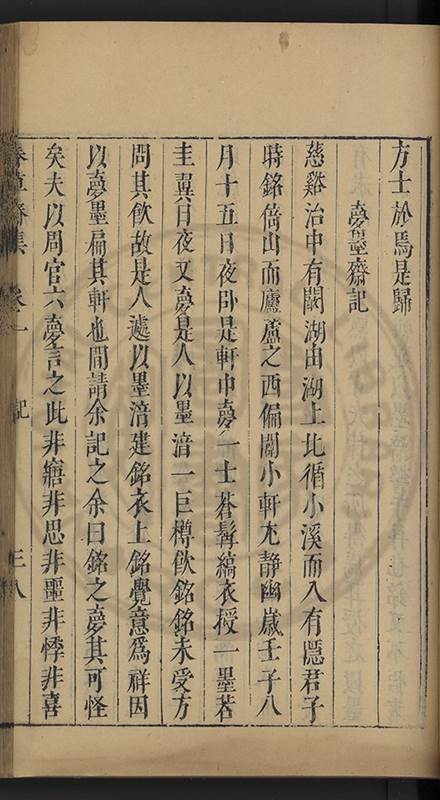 方士於焉是歸
夢墨齋記
慈谿治中有闞湖由湖上北循小溪而入有隱君子
時銘倚山而廬廬之西偏闢小軒尤静幽歲壬子八
月十五日夜卧是軒中夢一士蒼髯縞衣授一墨若
圭翼日夜又夢是人以墨涪一巨樽飲銘銘未受方
問其飲故是人遽以墨涪建銘衣上銘覺意為祥因
以夢墨扁其軒也間請余記之余曰銘之夢其可怪
矣夫以周官六夢言之此非寤非思非噩非悸非喜
春草齋集 卷一 記 三八